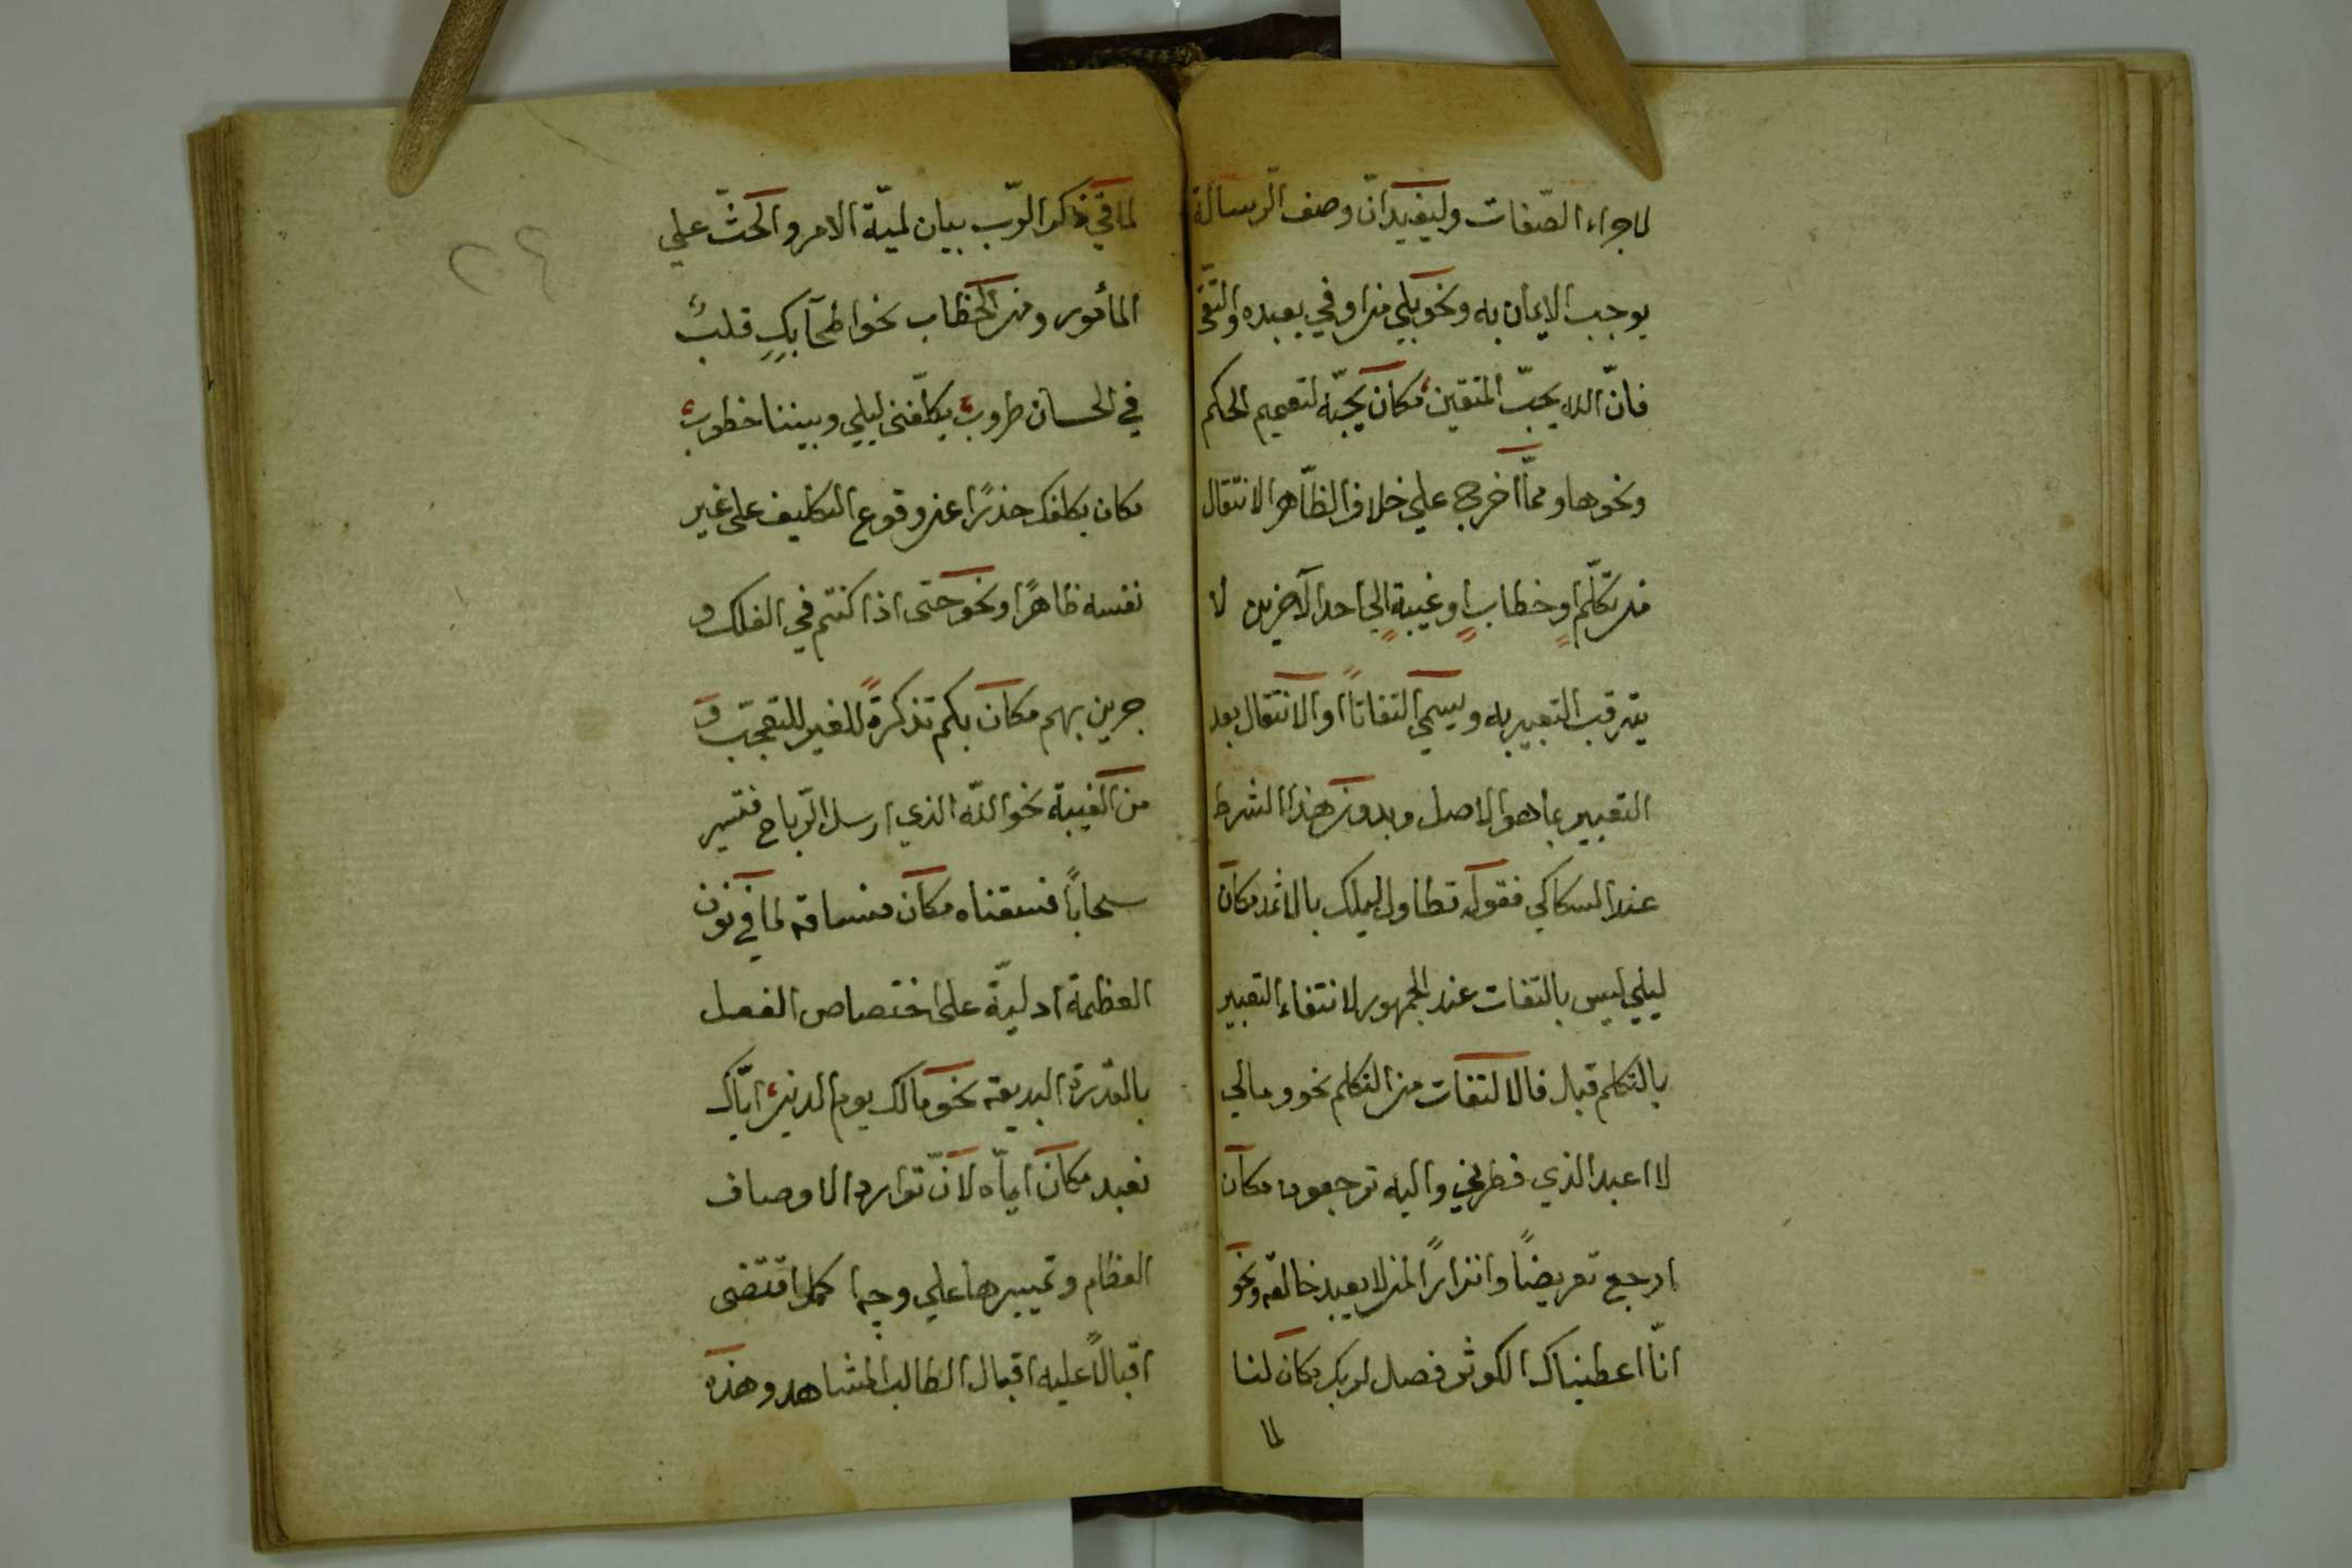 لاجراء الصّفات وليفيد انّ وصف الرّسالة
يوجب الايمان به ونحو بلي من اوفي بعهده واتّقى
فانّ الله يحبّ المتقين مكان يحبّه لتعميم الحكم
ونحوها وممّا اخرج علي خلاف الظّاهر الانتقال
من تكلّم او خطاب او غيبة الي احد الآخرين لا
يترقب التعبير به ويسمي التفاتاً او الانتقال بعد
التعبير بما هو الاصل وبدون هذا الشرط
عند السكاكي فقوله تطاول ليلك بالاثمد مكان
ليلي ليس بالتفات عند الجمهور لانتفاء التعبير
بالتكلم قبل فالالتفات من التكلم نحو ومالي
لا اعبد الذي فطرني واليه ترجعون مكان
ارجع تعريضاً وانذاراً لمن لا يعبد خالقه ونحو
انّا اعطيناك الكوثر فصل لربك مكان لنا
لما
لما في ذكر الرّب بيان لميّة الامر والحثّ علي
المأمور ومن الخطاب نحو اطحا بك قلب
في الحسان طروب يكلّفني ليلي وبيننا خطوب
مكان يكلفك حذرًا عن وقوع التكليف على غير
نفسه ظاهرًا ونحو حتى اذا كنتم في الفلك و
جرين بهم مكان بكم تذكرةً للغير للتعجّب و
من الغيبة نحو الله الذي ارسل الرّياح فتثير
سحاباً فسقناه مكان فساقه لما في نون
العظمة ادليّة على اختصاص الفعل
بالقدرة البديعة نحو مالك يوم الدين ايّاك
نعبد مكان ايّاه لانّ توارد الاوصاف
العظام وتمييزها علي وجه اكمل اقتضى
اقبالاً عليه اقبال الطالب المشاهد وهذه
٢٤